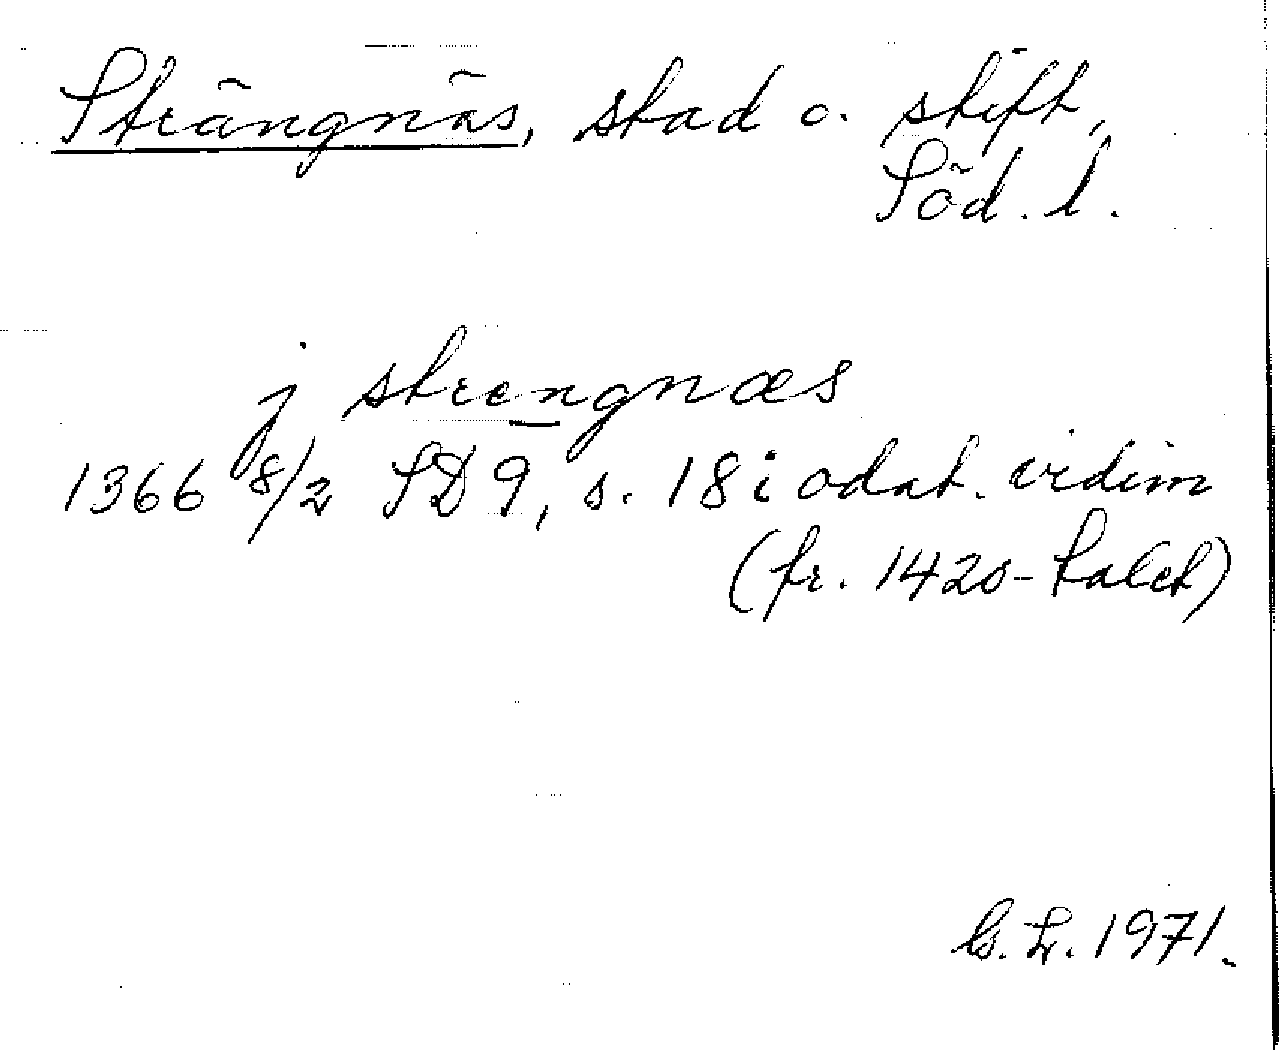 Strängnäs, stad o. stift,
Söd. l.
j strengnæs
1366 8/2 SD 9, s. 18 i odat. vidim
(fr. 1420-talet)
G. L. 1971.